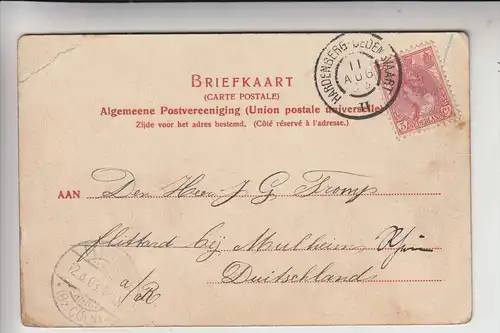 BRIEFKAART
(CARTE POSTALE)
Algemeene Postvereeniging (Union postale universelle)
Zijde voor het adres bestemd. (Côté réservé à l'adresse.)
HARDENBERG-DEDEMSVAART
11
AUG
NEDERLAND
5
AAN
Den Heer J G Tromp
Flittard bij Mulheim Rhein
a/R.
Duitschland
12.8.03